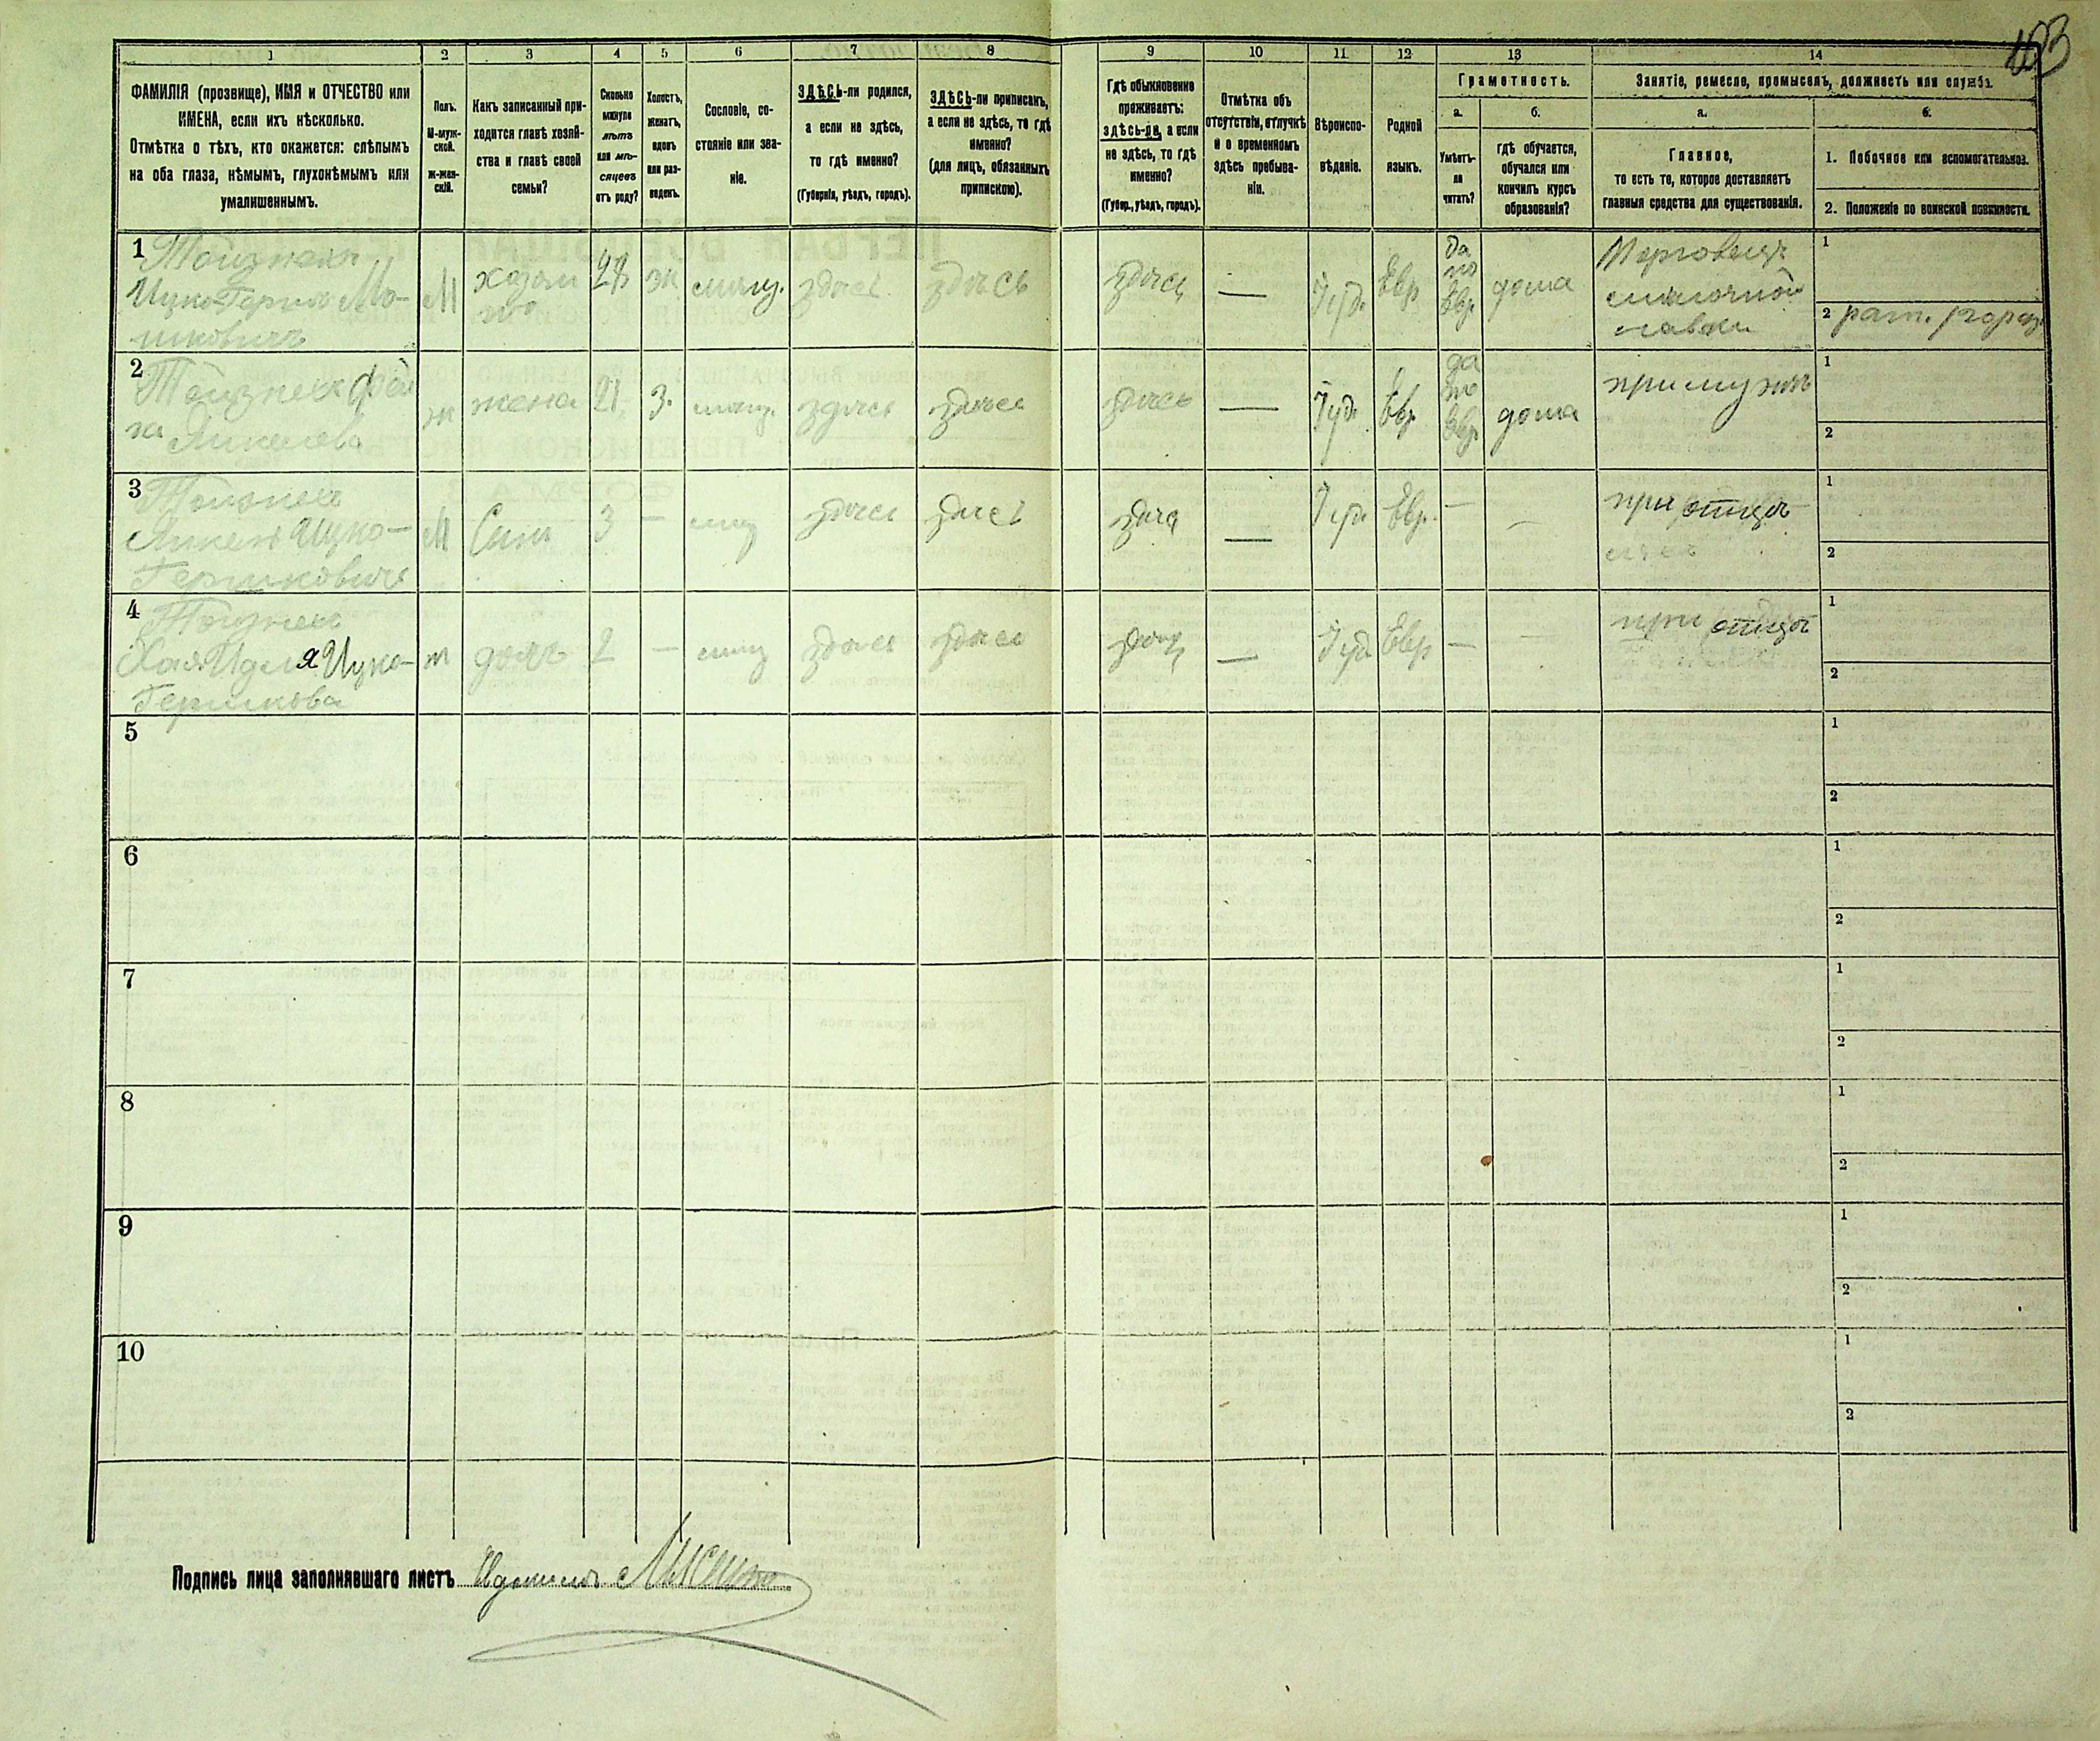 103
1 2 3 4 5 6 7 8 9 10 11 12 13 14
ФАМИЛІЯ (прозвище), ИМЯ и ОТЧЕСТВО или
ИМЕНА, если ихъ нѣсколько.
Отмѣтка о тѣхъ, кто окажется: слѣпымъ
на оба глаза, нѣмымъ, глухонѣмымъ или
умалишеннымъ.
Полъ.
М-муж-
ской.
Ж-жен-
скій.
Какъ записанный при-
ходится главѣ хозяй-
ства и главѣ своей
семьи?
Сколько
минуло
лѣтъ
или мѣ-
сяцевъ
отъ роду?
Холостъ,
женатъ,
вдовъ
или раз-
веденъ.
Сословіе, со-
стояніе или зва-
ніе.
ЗДѢСЬ-ли родился,
а если не здѣсь,
то гдѣ именно?
(Губернія, уѣздъ, городъ).
ЗДѢСЬ-ли приписанъ,
а если не здѣсь, то гдѣ
именно?
(для лицъ, обязанныхъ
припискою).
Гдѣ обыкновенно
проживаетъ:
здѣсь-ли, а если
не здѣсь, то гдѣ
именно?
(Губер., уѣздъ, городъ).
Отмѣтка объ
отсутствіи, отлучкѣ
и о временномъ
здѣсь пребыва-
ніи.
Вѣроиспо-
вѣданіе.
Родной
языкъ.
Грамотность.
а.
Умѣетъ-
ли
читать?
б.
гдѣ обучается,
обучался или
кончилъ курсъ
образованія?
Занятіе, ремесло, промыселъ, должность или служба.
а.
Главное,
то есть то, которое доставляетъ
главныя средства для существованія.
б.
1. Побочное или вспомогательное.
2. Положеніе по воинской повинности.
1
Ицко-Герш Мо-
шковичъ
М
хозяи
нъ
28
ж
мѣщ.
здѣсь
здѣсь
здѣсь
—
Іуд.
Евр
да
по
Евр.
дома
Торговецъ
мѣлочной
лавки
1
2 рат. 1 разр.
2
Янкелева
ж
жена
21
з.
мѣщ.
здѣсь
здѣсь
здѣсь
—
Іуд.
Евр
да
по
Евр.
дома
при мужѣ
1
2
3
Янкель Ицко-
Гершковичъ
М
Сынъ
3
—
мѣщ
здѣсь
здѣсь
здѣсь
—
Іуд.
Евр.
—
—
при отцѣ
1
2
4
Хая Идля Ицко-
Гершкова
ж
дочь
2
—
мѣщ
здѣсь
здѣсь
здѣсь
—
Іуд
Евр
—
—
при отцѣ
1
2
5
1
2
6
1
2
7
1
2
8
1
2
9
1
2
10
1
2
Подпись лица заполнявшаго листъ